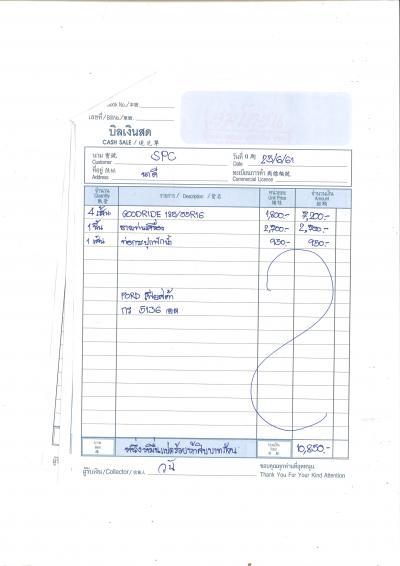 Book No./本號
เลขที่/Bill No./單號
บิลเงินสด
CASH SALE / 現沽單
นาม 寶號 Customer SPC วันที่ 日期 Date 23/6/61
ที่อยู่ 住址 Address นาดี ทะเบียนการค้า 商標號碼 Commercial Licence
จำนวน Quantity 數量 รายการ / Description / 貨名 หน่วยละ Unit Price 單價 จำนวนเงิน Amount 銀碼
4 เส้น GOODRIDE 195/55R16 1,800.- 7,200.-
1 ชิ้น ยางแท่นเครื่อง 2,700.- 2,700.-
1 เส้น ท่อกระปุกพักน้ำ 950.- 950.-
FORD เฟียสต้า
กร 5136
รวมเงิน Total หนึ่งหมื่นแปดร้อยห้าสิบบาทถ้วน 10,850.-
ผู้รับเงิน/Collector/收銀人 ขอบคุณทุกท่านที่อุดหนุน
Thank You For Your Kind Attention